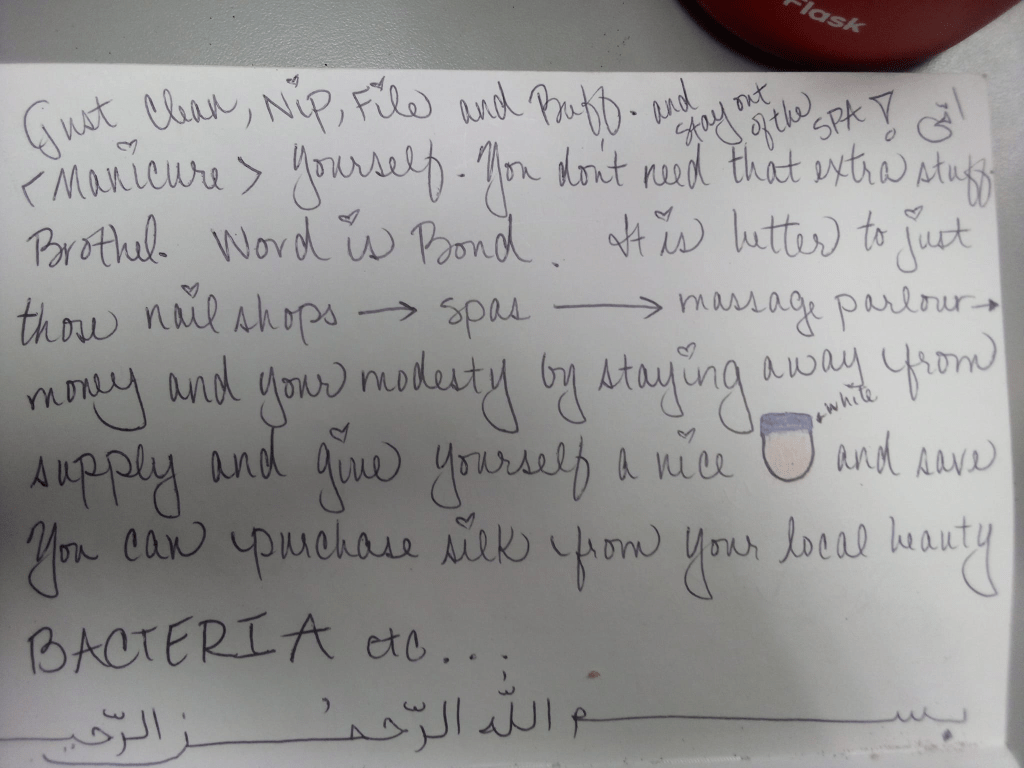 Flask
Just Clean, Nip, File and Buff. and stay out of the SPA!
<Manicure> yourself. You don't need that extra stuff.
Brothel. Word is Bond. It is better to just
those nail shops → spas → massage parlour →
money and your modesty by staying away from
white
supply and give yourself a nice and save
You can purchase silk from your local beauty
BACTERIA etc...
بسم الله الرّحمٰن الرّحيـ